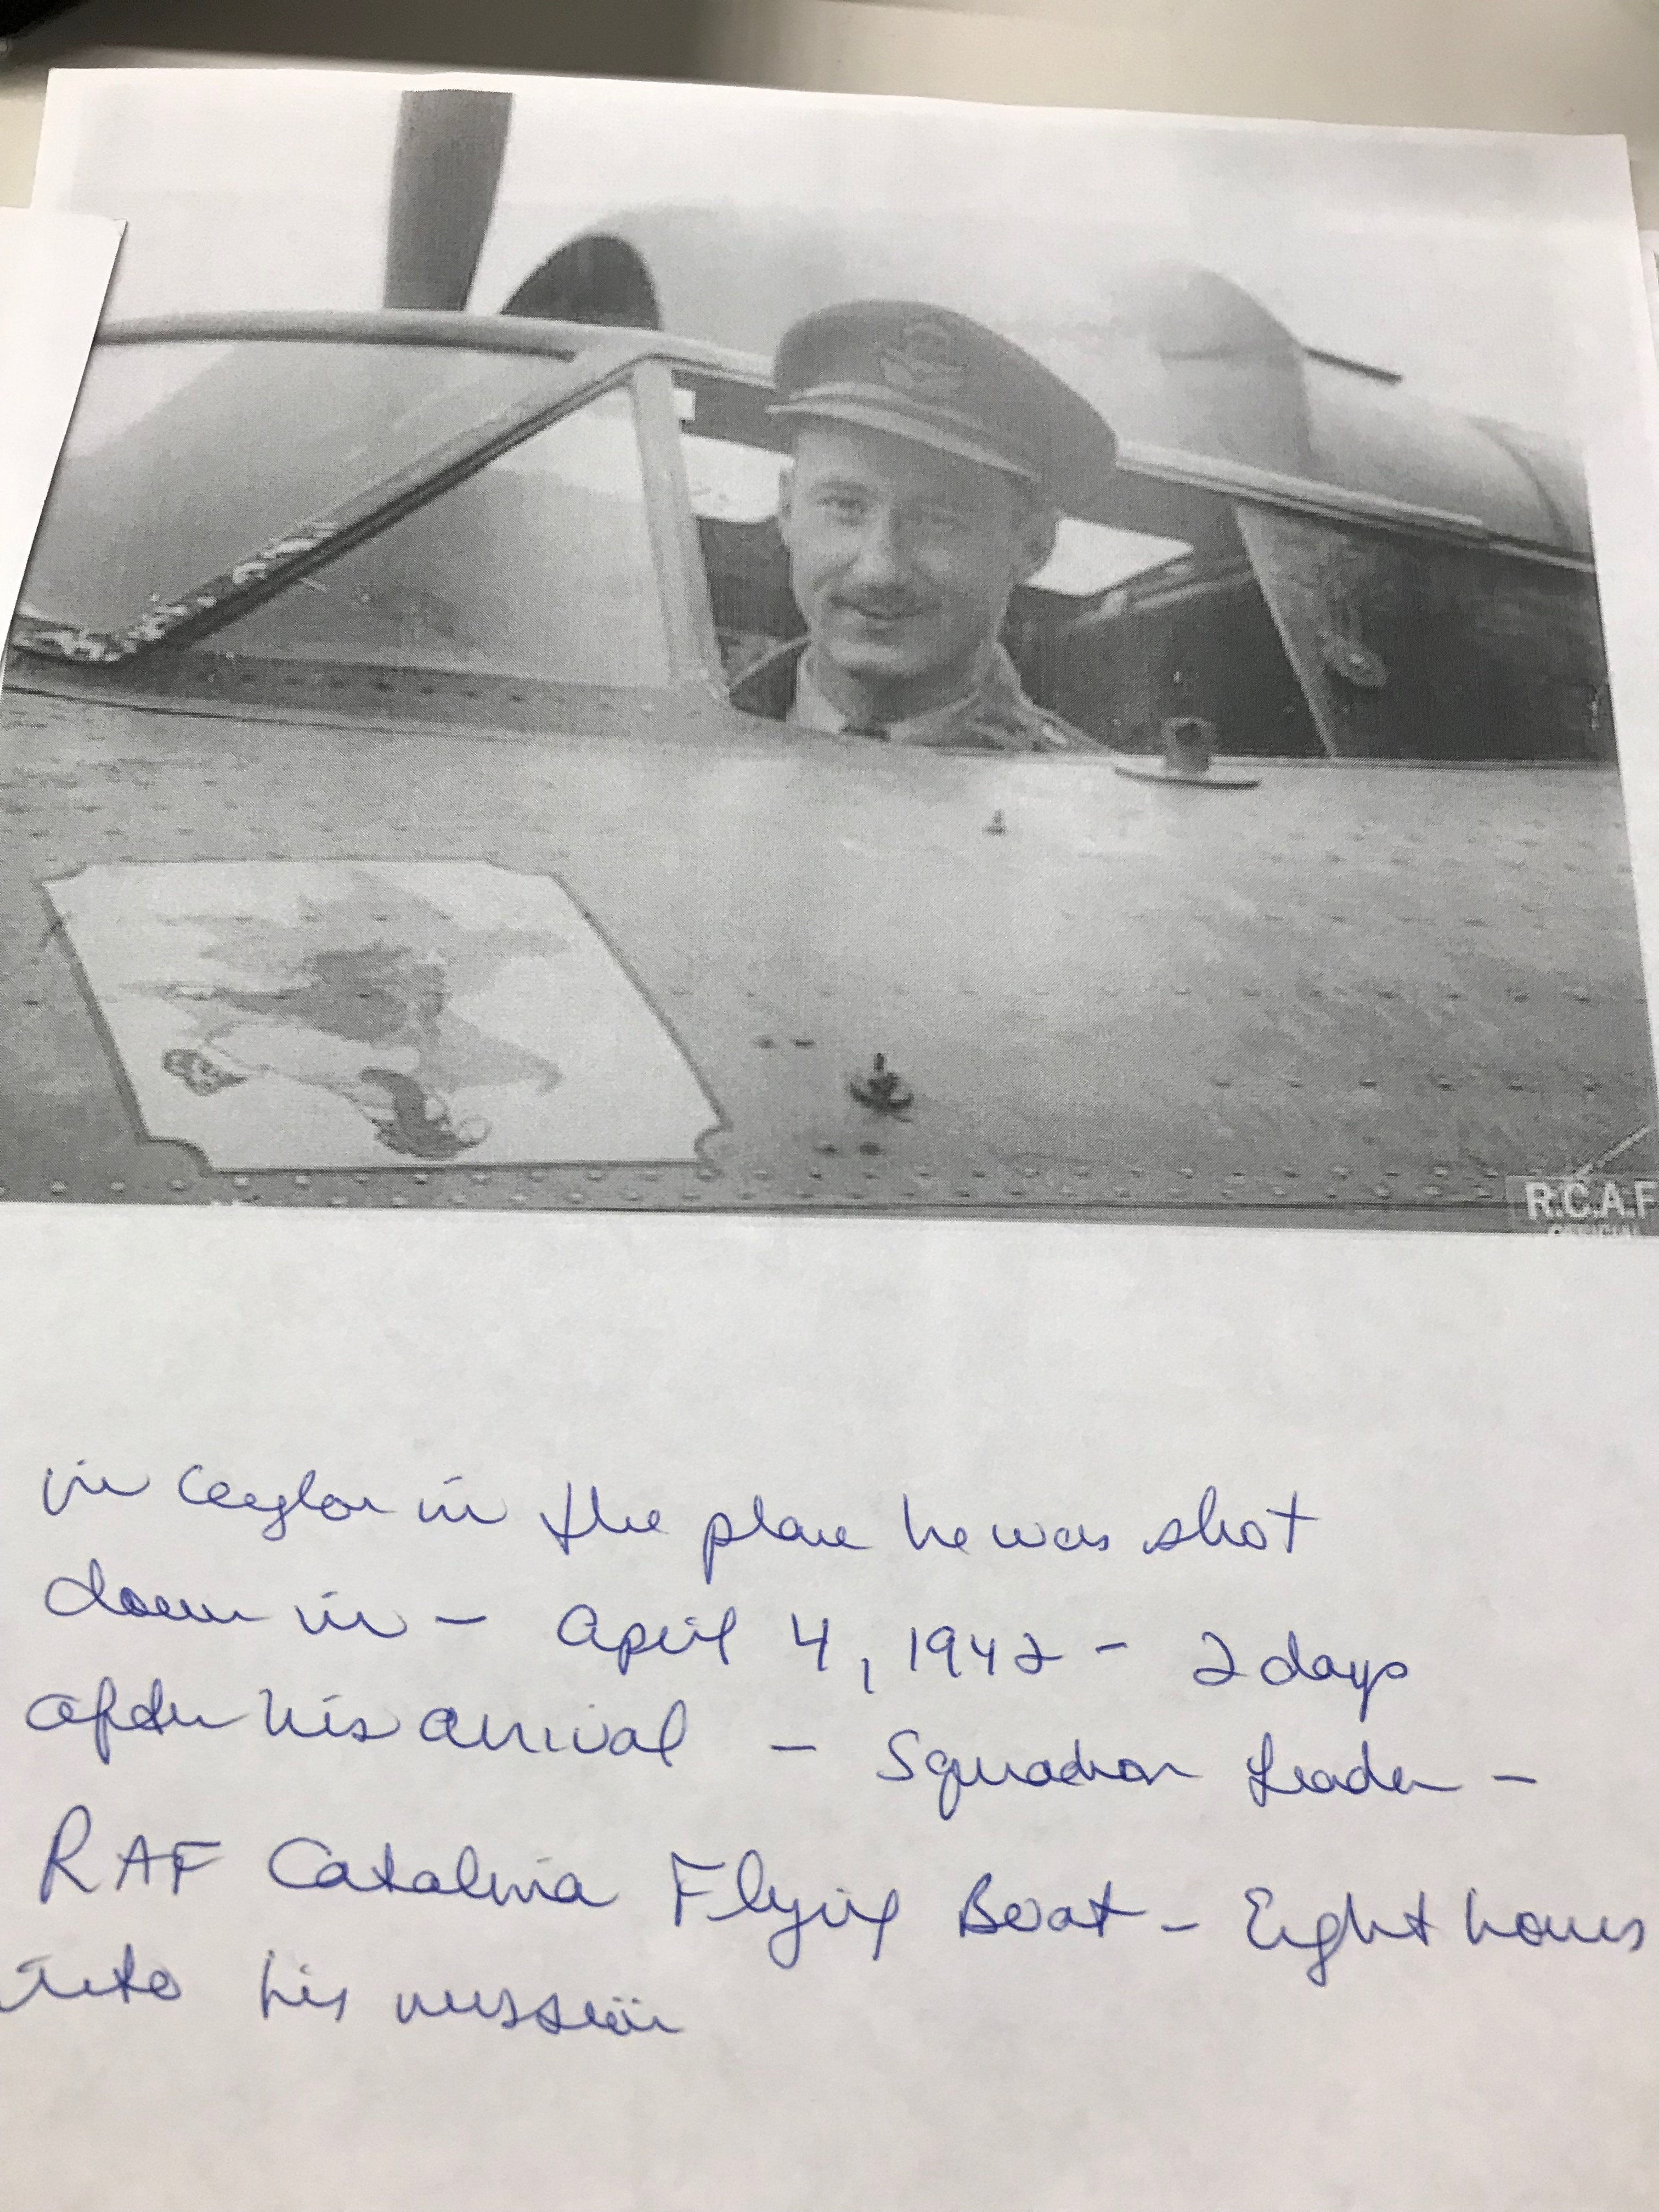 R.C.A.F
OFFICIAL
in Ceylon in the plane he was shot
down in - April 4, 1942 - 2 days
after his arrival - Squadron Leader -
RAF Catalina Flying Boat - Eight hours
into his mission